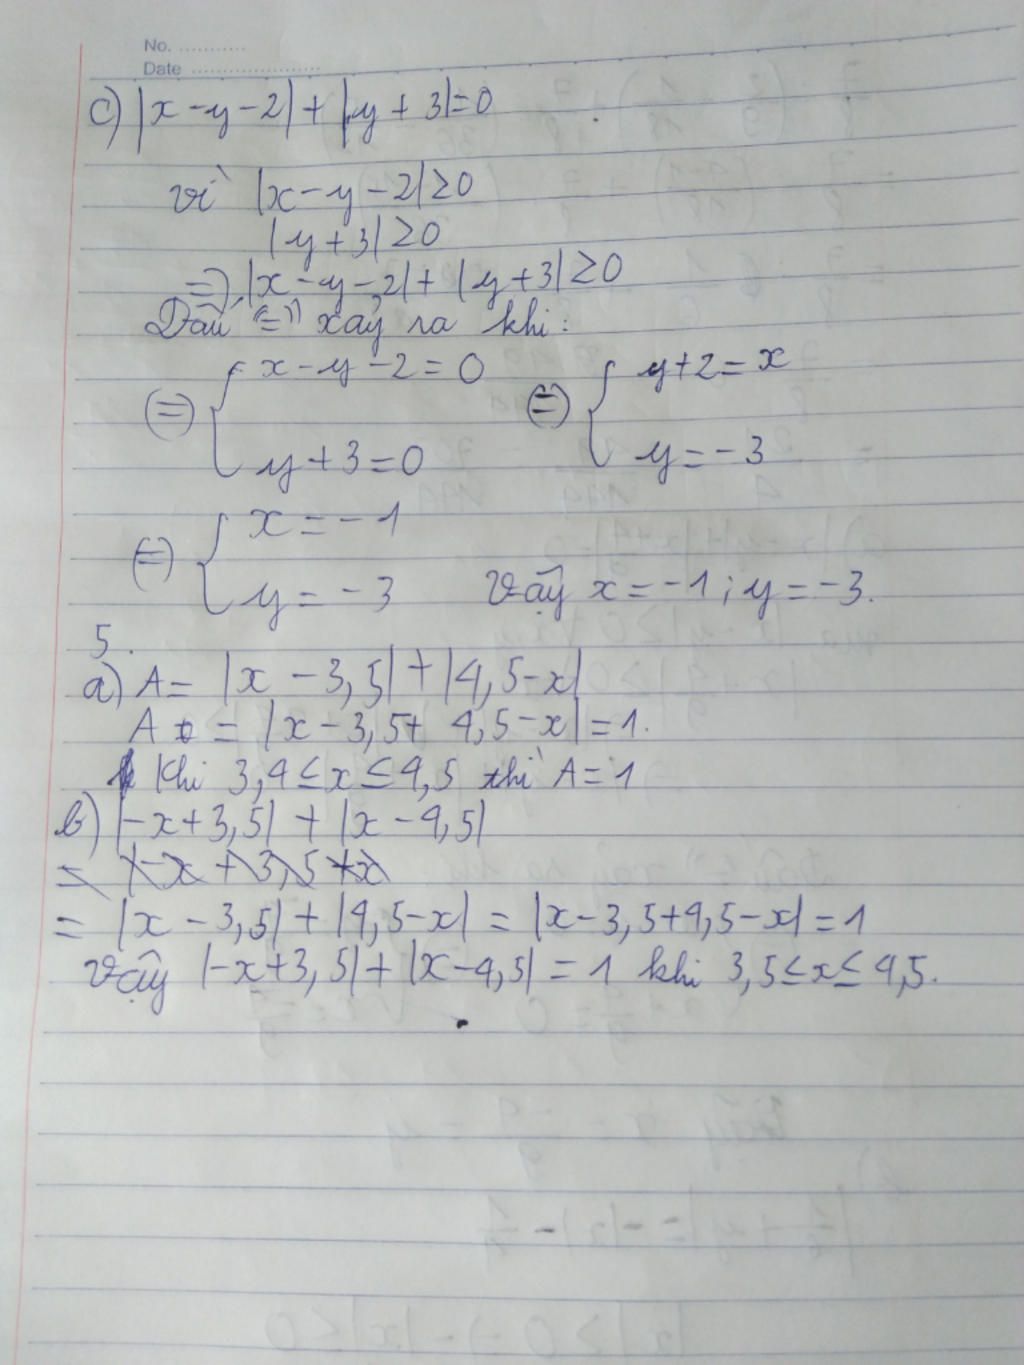 No. ............
Date ........................
c) |x - y - 2| + |y + 3| = 0
vì |x - y - 2| ≥ 0
|y + 3| ≥ 0
=> |x - y - 2| + |y + 3| ≥ 0
Dấu "=" xảy ra khi:
(=) { x - y - 2 = 0 (=) { y + 2 = x
y + 3 = 0 y = -3
(=) { x = -1
y = -3 Vậy x = -1; y = -3.
5.
a) A = |x - 3,5| + |4,5 - x|
A = |x - 3,5 + 4,5 - x| = 1.
Khi 3,4 ≤ x ≤ 4,5 thì A = 1
b) |-x + 3,5| + |x - 4,5|
= |-x + 3,5 + x
= |x - 3,5| + |4,5 - x| = |x - 3,5 + 4,5 - x| = 1
Vậy |-x + 3,5| + |x - 4,5| = 1 khi 3,5 ≤ x ≤ 4,5.